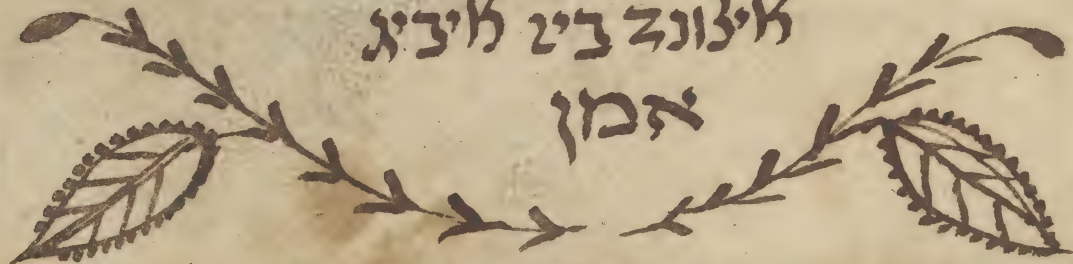 איצונד ביז איביג
אמן